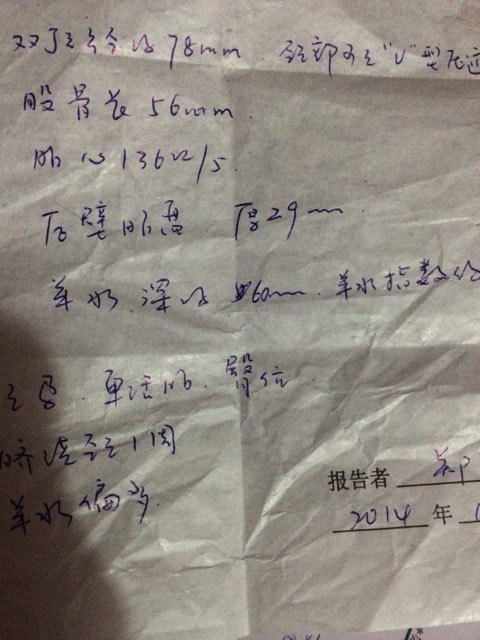 双顶径约78mm 颈部可见"U"型压迹
股骨长56mm.
胎心136次/分
后壁胎盘. 厚29mm
羊水.深约60mm.羊水指数约
孕.单活胎.臀位
脐绕颈1周
羊水偏多.
报告者
2014年